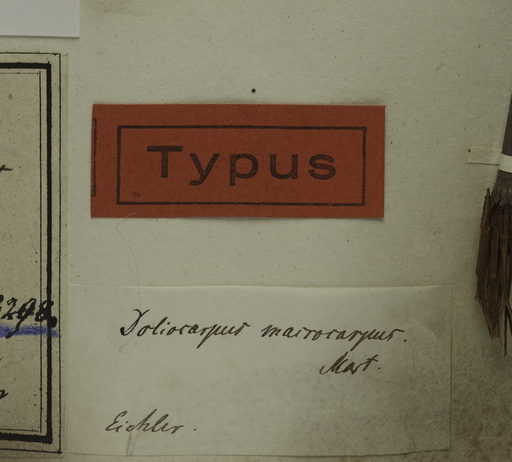 Typus
3298.
Doliocarpus macrocarpus.
Mart.
Eichler.